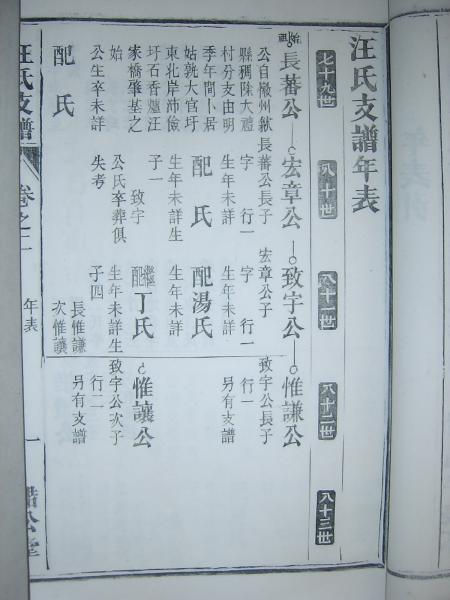 汪氏支譜年表
七十九世
八十世
八十一世
八十二世
八十三世
始祖
長蕃公
宏章公
致宇公
惟謙公
公自徽州歙
縣稠隆大禮
村分支由明
季年間卜居
姑孰大官圩
東北岸沛儉
圩石香爐汪
家橋肇基之
始
公生卒未詳
配氏
長蕃公長子
字 行一
生年未詳
配氏
生年未詳生
子一
致宇
公氏卒葬俱
失考
宏章公子
字 行一
生年未詳
配湯氏
生年未詳
繼配丁氏
生年未詳生
子四
長惟謙
次惟讓
致宇公長子
行一
另有支譜
惟讓公
致宇公次子
行二
另有支譜
汪氏支譜
卷之二
年表
一
公堂